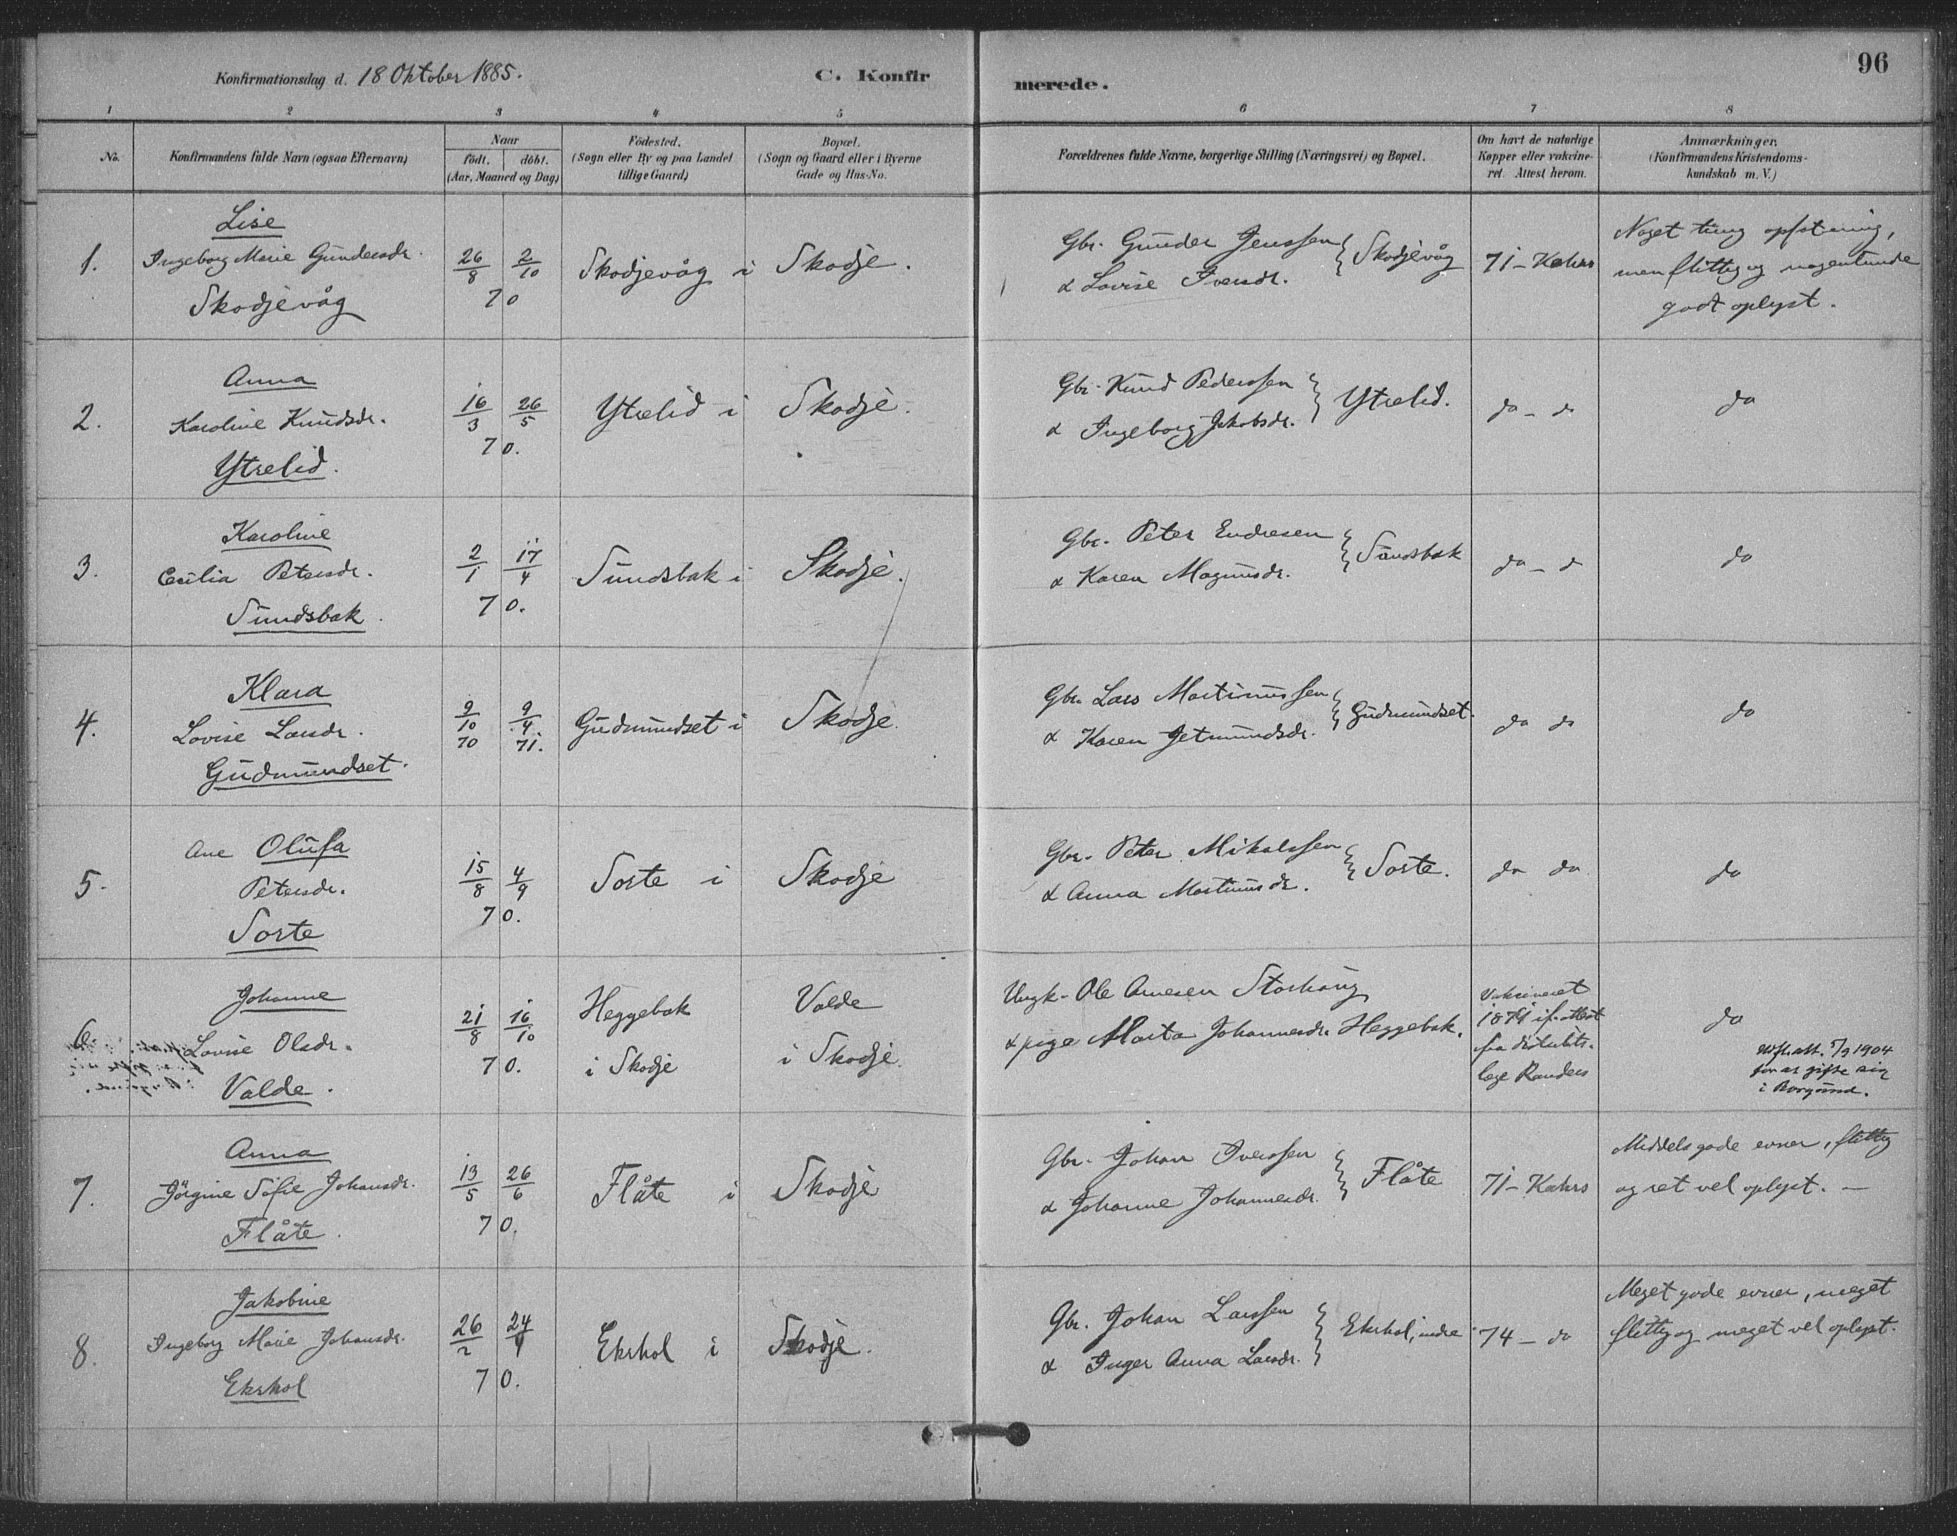 96
Konfirmationsdag d. 18 Oktober 1885.
C. Konfirmerede.
1 2 3 4 5 6 7 8
No.
Konfirmandens fulde Navn (ogsaa Efternavn)
Naar
födt. döbt.
(Aar, Maaned og Dag)
Födested.
(Sogn eller By og paa Landet
tillige Gaard)
Bopæl.
(Sogn og Gaard eller i Byerne
Gade og Hus-No.
Forældrenes fulde Navne, borgerlige Stilling (Næringsvei) og Bopæl.
Om havt de naturlige
Kopper eller vakcine-
ret. Attest herom.
Anmærkninger.
(Konfirmandens Kristendoms-
kundskab m. V.)
1.
Lise
Ingeborg Marie Gundersdr.
Skodjevåg
26/8 2/10
70
Skodjevåg i
Skodje.
Gbr. Gunder Jenssen
& Lovise Iversdr.
Skodjevåg
71 - Kahrs
Noget tung opfatning,
men flittig og nogenlunde
godt oplyst.
2.
Anna
Karoline Knudsdr.
Ytrelid.
16/3 26/5
70.
Ytrelid i
Skodje.
Gbr. Knud Pederssen
& Ingeborg Jakobsdr.
Ytrelid.
do - do
do
3.
Karoline
Cecilia Petersdr.
Sundsbak.
2/1 17/4
70.
Sundsbak i
Skodje.
Gbr. Peter Endresen
& Karen Magnusdr.
Sundsbak
do - d
do
4.
Klara
Lovise Larsdr.
Gudmundset.
9/10 9/4
70 71.
Gudmundset i
Skodje
Gbr. Lars Martinussen
& Karen Jetmundsdr.
Gudmundset.
do do
do
5.
Ane Olufa
Petersdr.
Sorte
15/8 4/9
70.
Sorte i
Skodje
Gbr. Peter Mikalssen
& Anna Martinusdr.
Sorte.
do do
do
6.
Johanne
Lovise Olsdr.
Valde.
21/8 16/10
70.
Heggebak
i Skodje
Valde
i Skodje.
Ungk. Ole Arnesen Storhaug
& pige Marta Johannesdr. Heggebak.
Vakcineret
1871 if. attest
fra distrikts-
læge Randers
do
Utf. att. 5/9 1904
for at gifte sig
i Borgund.
7.
Anna
Jörgine Sofie Johansdr.
Flåte.
13/5 26/6
70.
Flåte i
Skodje
Gbr. Johan Iverssen
& Johanne Johannesdr.
Flåte
71 - Kahrs
Middels gode evner, flittig
og ret vel oplyst. —
8.
Jakobine
Ingeborg Marie Johansdr.
Ekrhol
26/2 24/4
70.
Ekrhol i
Skodje.
Gbr. Johan Larssen
& Inger Anna Larsdr.
Ekrhol, indre
74 - do
Meget gode evner, meget
flittig og meget vel oplyst.